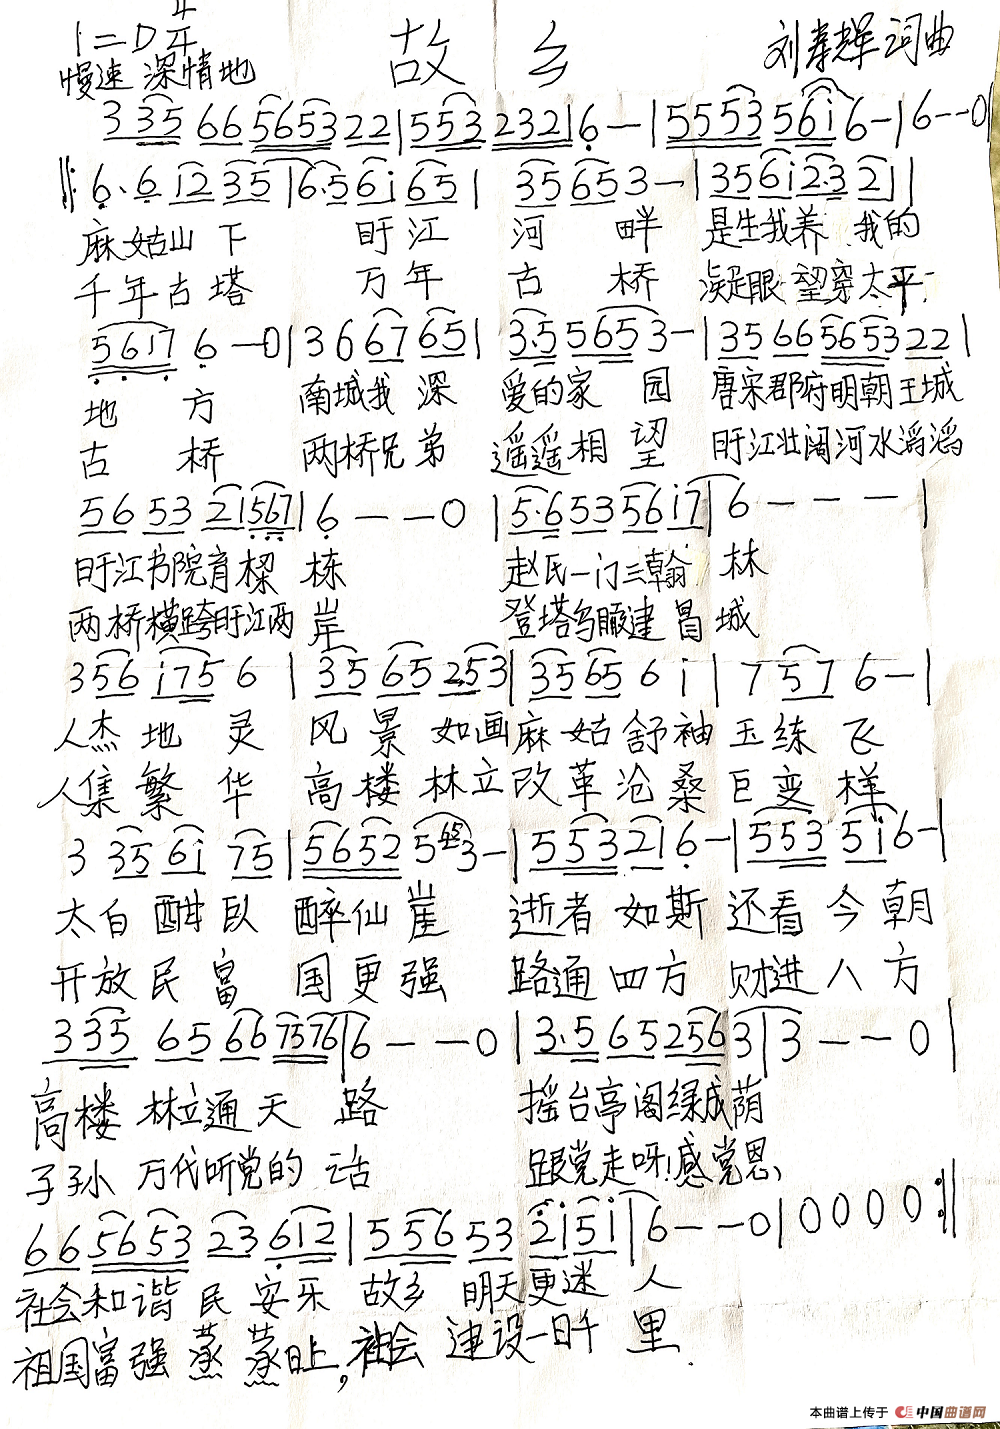 1=D 4/4
故乡
刘寿辉 词曲
慢速 深情地
3 35 66 5653 22 | 553 2321 6 — | 5553 56i 6 — | 6 — — 0 |
‖: 6·6 i2 35 | 6·5 6i 65 | 35 653 — | 356i 2·3 21 |
麻姑山下 盱江 河畔 是生我养 我的
千年古塔 万年 古桥 凝眼望穿太平
5617 6 — 0 | 3 6 67 65 | 3·5 565 3 — | 35 66 5653 22 |
地方 南城我深 爱的家园 唐宋郡府明朝王城
古桥 两桥兄弟 遥遥相望 盱江壮阔河水滔滔
56 53 21567 | 6 — — 0 | 5·6 53 56 i7 | 6 — — — |
盱江书院育樑 栋 赵氏一门三翰 林
两桥横跨盱江两 岸 登塔鸟瞰建昌 城
356 i75 6 | 35 65 253 | 35 65 6 i | 7 57 6 — |
人杰地灵 风景如画 麻姑舒袖 玉练飞
人集繁华 高楼林立 改革沧桑 巨变样
3 35 6i 75 | 5652 5 65 3 — | 553 21 6 — | 553 5i 6 — |
太白酣卧 醉仙崖 逝者如斯 还看今朝
开放民富 国更强 路通四方 财进八方
3 35 65 66 7576 | 6 — — 0 | 3·5 65 256 3 | 3 — — 0 |
高楼 林立通天 路 摇台亭阁绿成荫
子孙 万代听党的 话 跟党走呀!感党恩
66 5653 23 612 | 556 53 2i5i | 6 — — 0 | 0 0 0 0 :‖
社会和谐 民安乐 故乡 明天更迷 人
祖国富强 蒸蒸日上,社会 建设一日千 里
本曲谱上传于 中国曲谱网